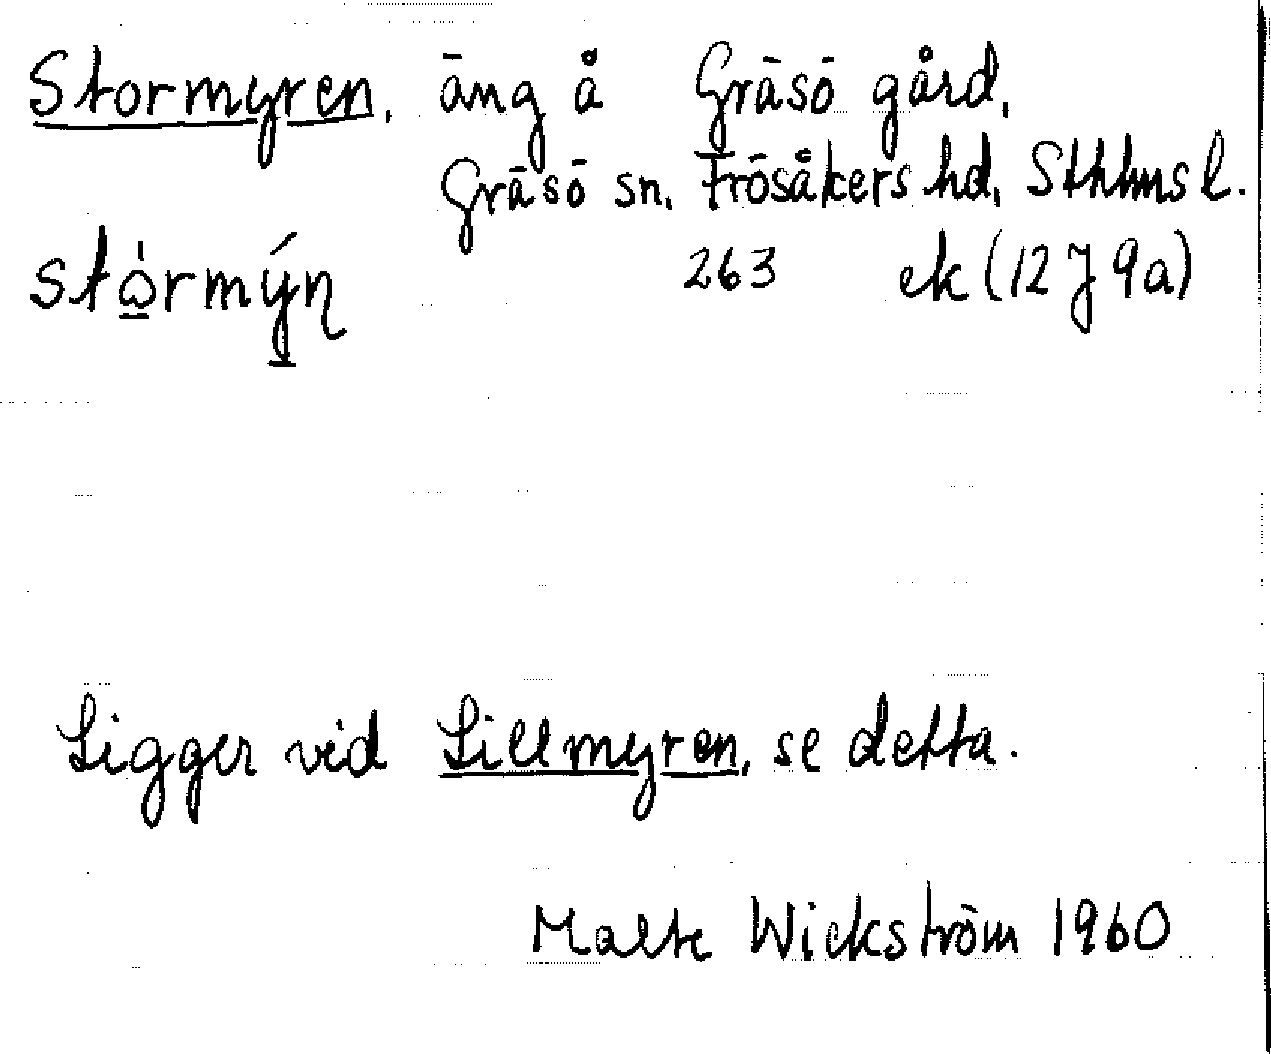 Stormyren, äng å Gräsö gård,
Gräsö sn, Frösåkers hd, Sthlms l.
263 ek (12 J 9a)
Ligger vid Lillmyren, se detta.
Malte Wickström 1960